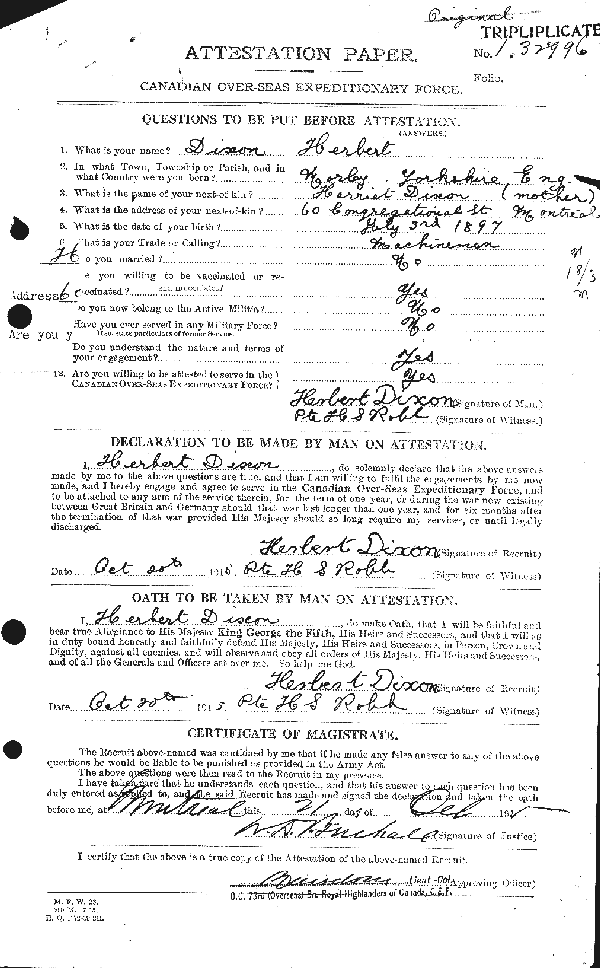 Original
TRIPLIPLICATE
No. 132996
Folio.
ATTESTATION PAPER.
CANADIAN OVER-SEAS EXPEDITIONARY FORCE.
QUESTIONS TO BE PUT BEFORE ATTESTATION.
(ANSWERS.)
1. What is your name? Dixon Herbert
2. In what Town, Township or Parish, and in
what Country were you born? Morley Yorkshire, Eng.
3. What is the name of your next-of-kin? Harriet Dixon (mother)
4. What is the address of your next-of-kin? 60 Congregational St Montreal
5. What is the date of your birth? July 3rd 1897
6. What is your Trade or Calling? Machineman
H o you married? No
18/3
e you willing to be vaccinated or re-
Address 60 ccinated? Yes
Do you now belong to the Active Militia? No
Have you ever served in any Military Force? No
Are you y If so, state particulars of former Service.
Do you understand the nature and terms of
your engagement? Yes
12. Are you willing to be attested to serve in the
CANADIAN OVER-SEAS EXPEDITIONARY FORCE? Yes
Herbert Dixon (Signature of Man.)
Pte H S Robb (Signature of Witness.)
DECLARATION TO BE MADE BY MAN ON ATTESTATION.
I, Herbert Dixon, do solemnly declare that the above answers
made by me to the above questions are true, and that I am willing to fulfil the engagements by me now
made, and I hereby engage and agree to serve in the Canadian Over-Seas Expeditionary Force, and
to be attached to any arm of the service therein, for the term of one year, or during the war now existing
between Great Britain and Germany should that war last longer than one year, and for six months after
the termination of that war provided His Majesty should so long require my services, or until legally
discharged.
Herbert Dixon (Signature of Recruit)
Date Oct 20th 1915 Pte H S Robb (Signature of Witness)
OATH TO BE TAKEN BY MAN ON ATTESTATION.
I, Herbert Dixon, do make Oath, that I will be faithful and
bear true Allegiance to His Majesty King George the Fifth, His Heirs and Successors, and that I will as
in duty bound honestly and faithfully defend His Majesty, His Heirs and Successors, in Person, Crown and
Dignity, against all enemies, and will observe and obey all orders of His Majesty, His Heirs and Successors,
and of all the Generals and Officers set over me. So help me God.
Herbert Dixon (Signature of Recruit)
Date Oct 20th 1915. Pte H S Robb (Signature of Witness)
CERTIFICATE OF MAGISTRATE.
The Recruit above-named was cautioned by me that if he made any false answer to any of the above
questions he would be liable to be punished as provided in the Army Act.
The above questions were then read to the Recruit in my presence.
I have taken care that he understands each question, and that his answer to each question has been
duly entered as replied to, and the said Recruit has made and signed the declaration and taken the oath
before me, at Montreal this 21 day of Oct 191
(Signature of Justice)
I certify that the above is a true copy of the Attestation of the above-named Recruit.
Lieut-Col. (Approving Officer)
O.C. 73rd (Overseas) Bn. Royal Highlanders of Canada, C.E.F.
M. F. W. 23.